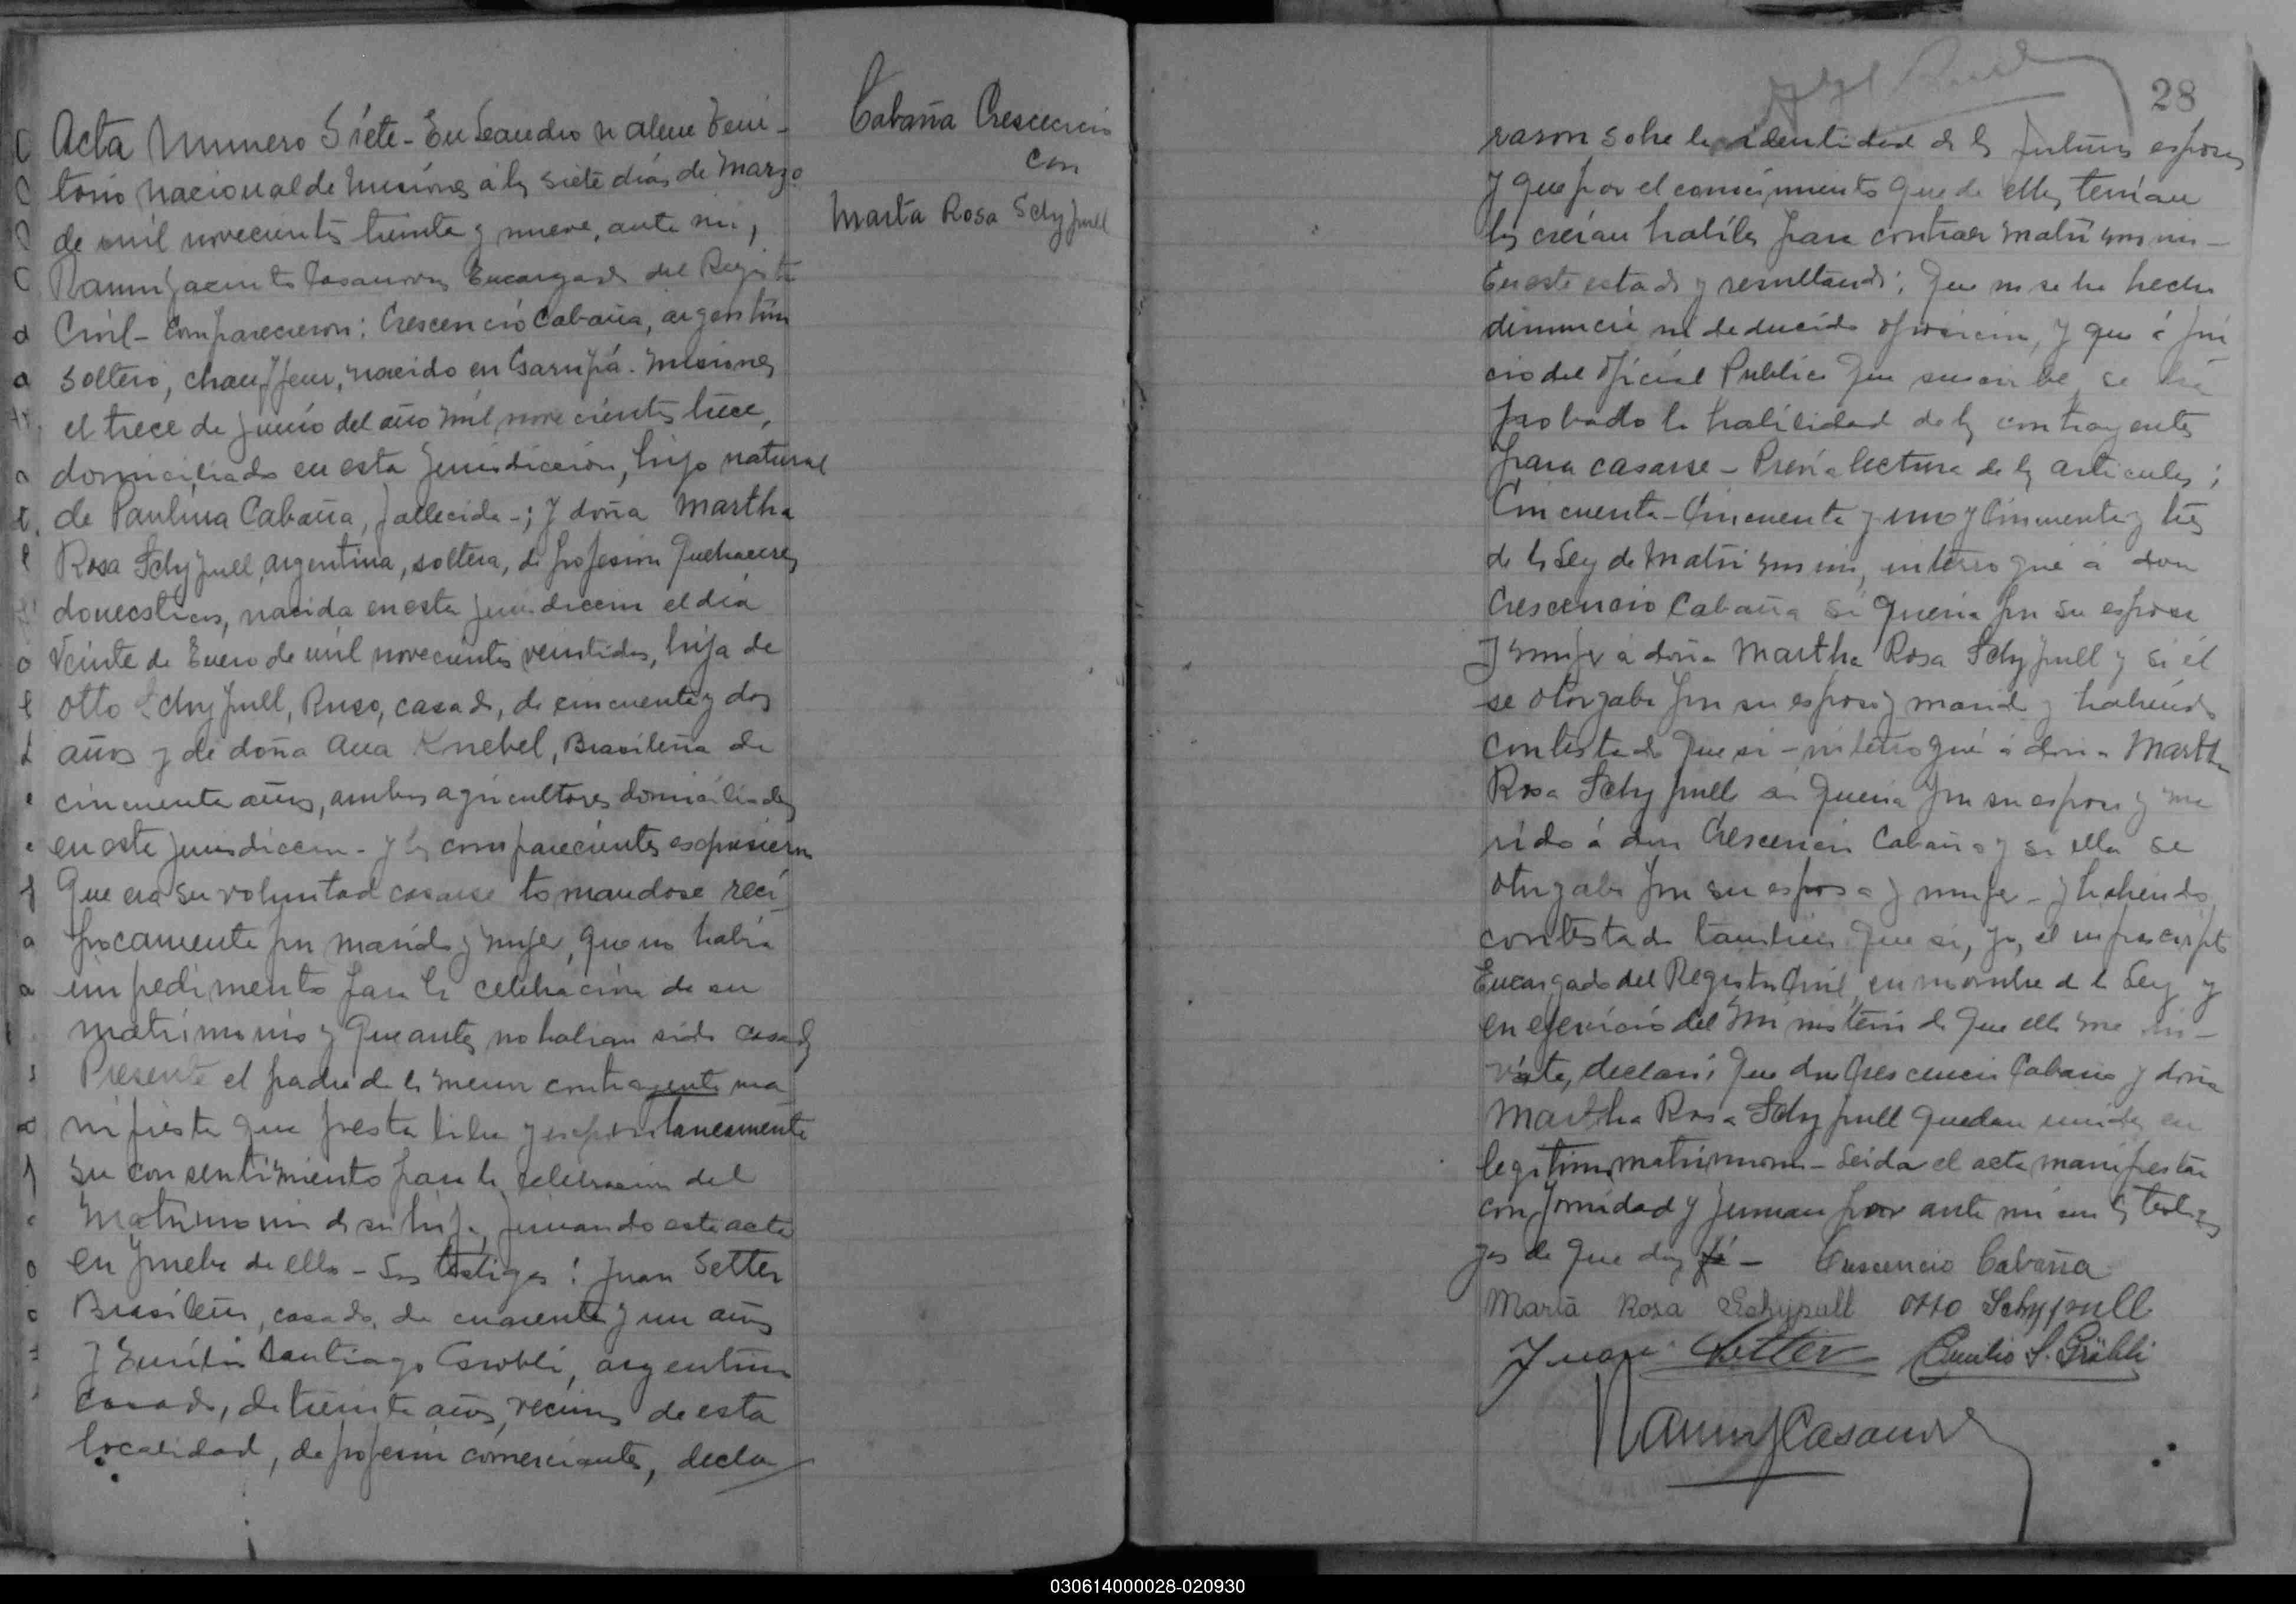 Acta Numero Siete - En Leandro N alem Terri-
torio Nacional de Misiones á los siete días de Marzo
de mil novecientos treinta y nueve, ante mi,
Casanova Encargado del Registro
Civil - Comparecieron: Crescencio Cabaña, argentino
soltero, chauffeur, nacido en Garupá. Misiones
el trece de Junio del año mil novecientos trece,
domiciliado en esta Jurisdiccion, hijo natural
de Paulina Cabaña, fallecida -; y doña Martha
Rosa Schypull, argentina, soltera, de profesion Quehaceres
domesticos, nacida en esta jurisdiccion el día
Veinte de Enero de mil novecientos veintidos, hija de
Otto Schypull, Ruso, casado, de cincuenta y dos
años y de doña Ana Knebel, Brasileña de
cincuenta años, ambos agricultores domiciliados
en esta jurisdiccion - y los comparecientes espusieron
Que era su voluntad casarse tomandose reci-
procamente por marido y mujer, que no habia
impedimento para la celebracion de su
matrimonio y Que antes no habian sido casados
Presente el padre de la menor contrayente ma
nifiesta que presta libre y espontaneamente
su consentimiento para la celebracion del
Matrimonio de su hija, firmando este acta
en prueba de ello - Los testigos: Juan Setter
Brasileño, casado, de cuarenta y un años
y Emilio Santiago Grobli, argentino
casado, de treinta años, vecinos de esta
localidad, de profesion comerciantes, decla
Cabaña Crescencio
con
Marta Rosa Schypull
28
raron sobre la identidad de los futuros esposos
y que por el conocimiento que de ellos tenian
los creían habiles para contraer matrimonio -
En este estado y resultando: Que no se ha hecho
denuncia ni deducido oposicion, y que á jui
cio del oficial Publico que suscribe se ha
probado la habilidad de los contrayentes
para casarse - Previa lectura de los articulos;
Cincuenta - Cincuenta y uno y Cincuenta y tres
de la Ley de Matrimonio, interrogué á don
Crescencio Cabaña si queria por su esposa
y mujer á doña Martha Rosa Schypull y si él
se otorgaba por su esposo y marido y habiendo
contestado que si - interrogué á doña Martha
Rosa Schypull si queria por su esposo y ma
rido á don Crescencio Cabaña y si ella se
otorgaba por su esposa y mujer - y habiendo
contestado tambien que si, yo, el infrascripto
Encargado del Registro Civil, en nombre de la Ley y
en ejercicio del Ministerio de que ella me in-
viste, declaré; Que don Crescencio Cabaña y doña
Martha Rosa Schypull quedan unidos en
legitimo matrimonio - Leida el acta manifestan
conformidad y firman por ante mi con los testigos
de que doy fé - Crescencio Cabaña
Marta Rosa Schypull Otto Schypull
Juan Setter Emilio S. Gröbli
Casanova
030614000028-020930